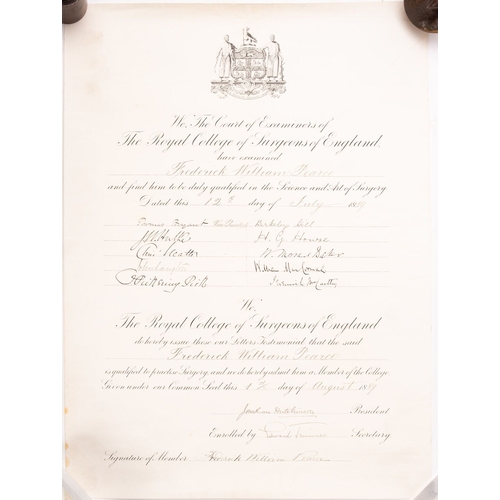 We, The Court of Examiners of
The Royal College of Surgeons of England,
have examined
Frederick William Pearce
and find him to be duly qualified in the Science and Art of Surgery.
Dated this 12th day of July 1889
Thomas Bryant Vice President Berkeley Hill
H. G. Howse
William MacCormac
J Pickering Pick
We,
The Royal College of Surgeons of England
do hereby issue these our Letters Testimonial that the said
Frederick William Pearce
is qualified to practise Surgery, and we do hereby admit him a Member of the College.
Given under our Common Seal this day of August 1889
Jonathan Hutchinson President
Enrolled by Secretary
Signature of Member Frederick William Pearce